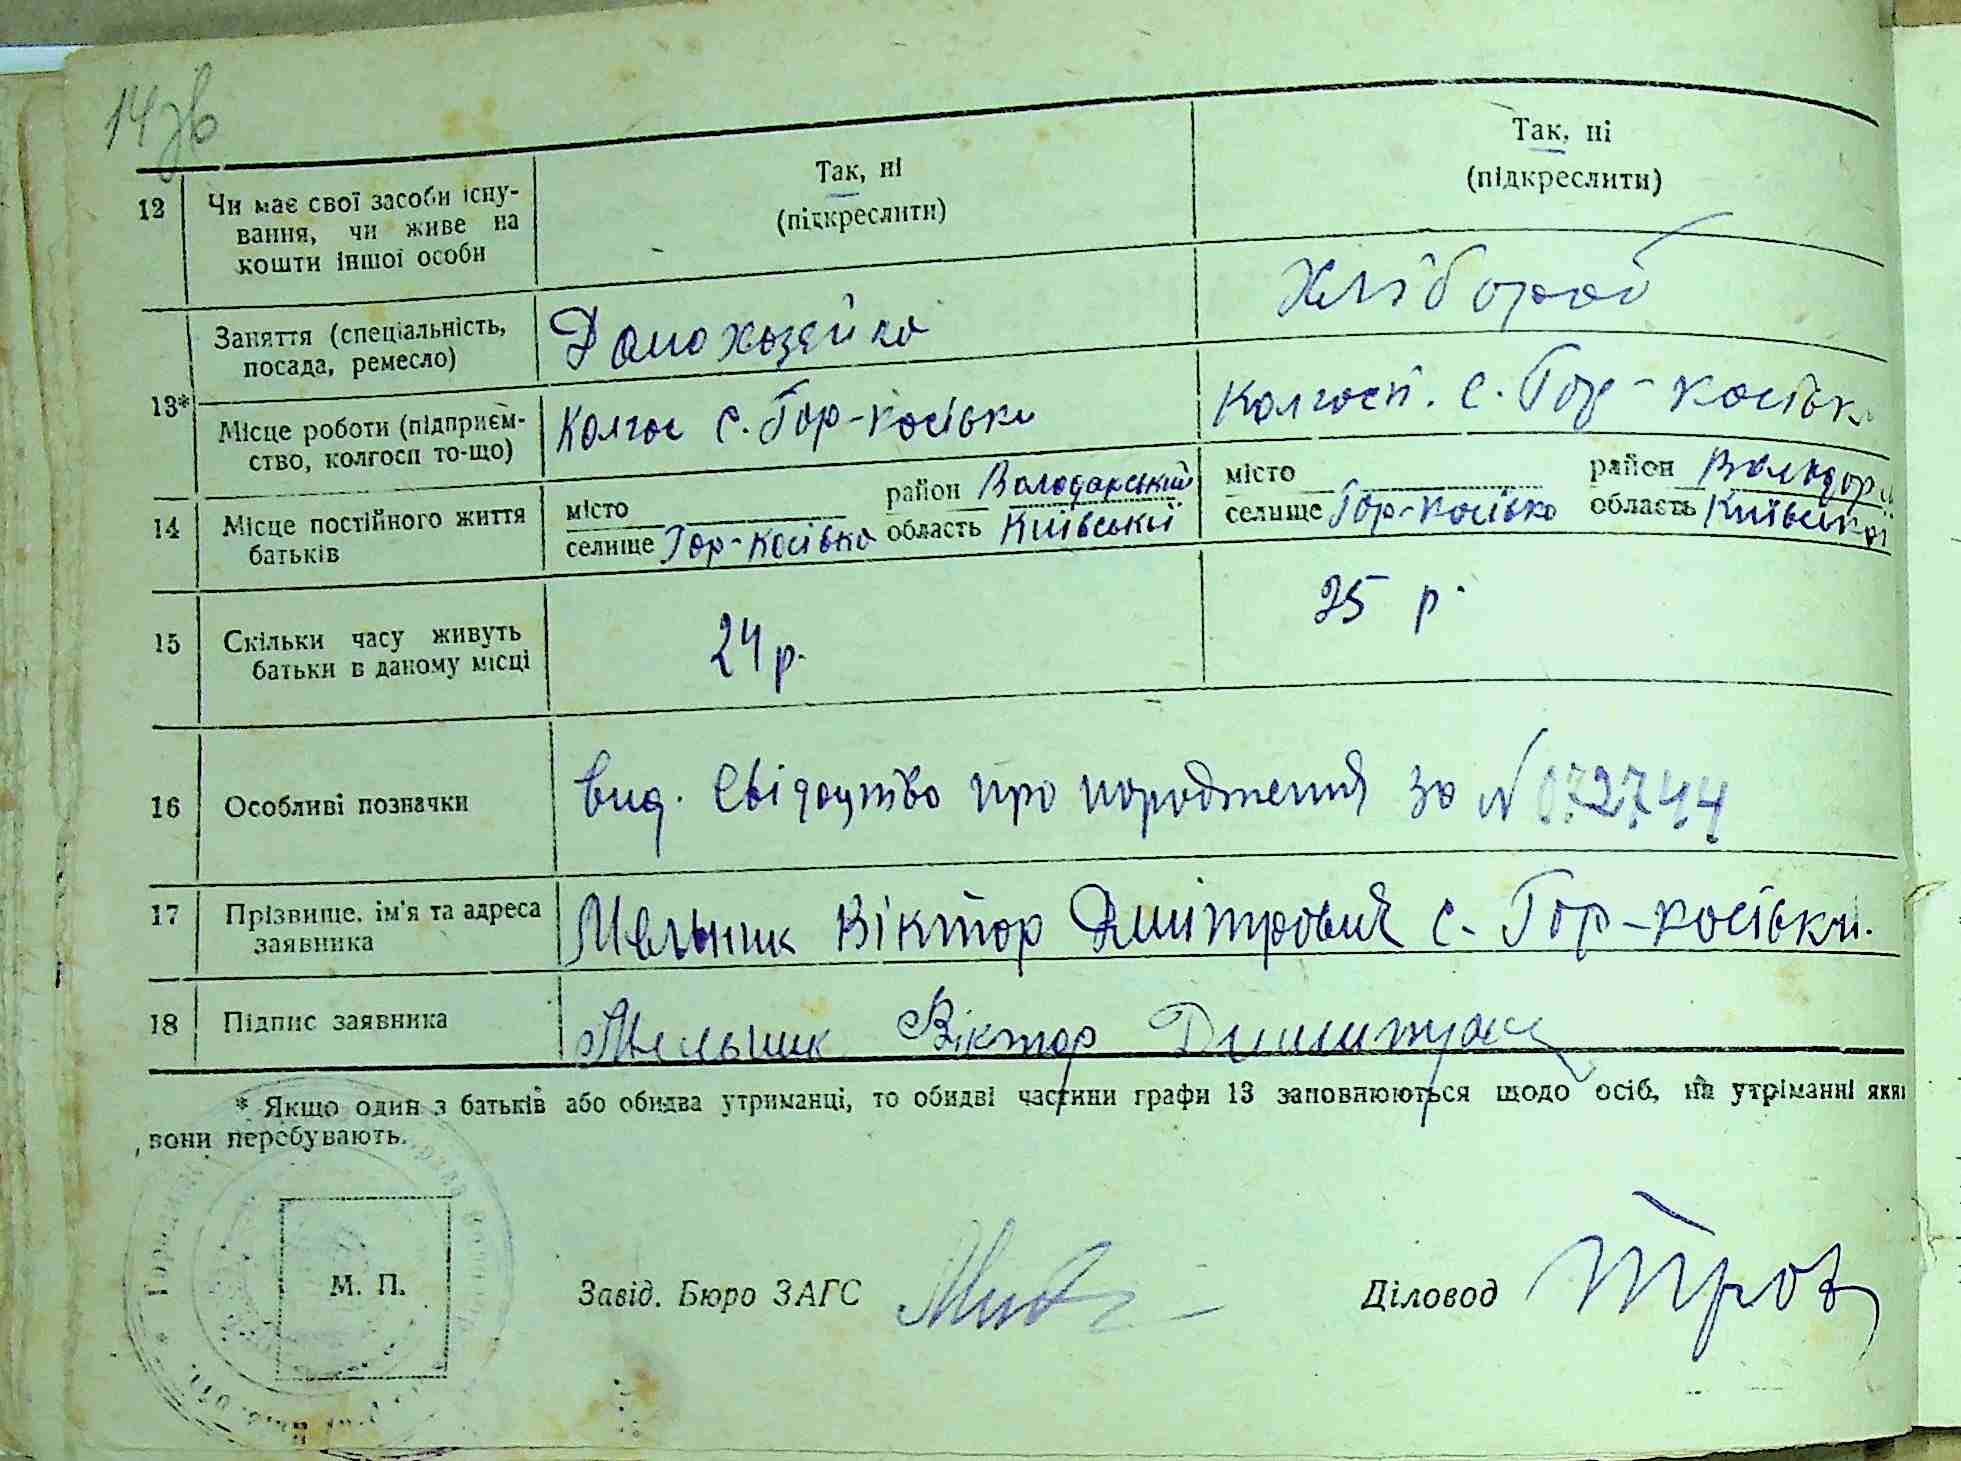 14зв
Так, ні
(підкреслити)
Так, ні
(підкреслити)
12
Чи має свої засоби існу-
вання, чи живе на
кошти іншої особи
13*
Заняття (спеціальність,
посада, ремесло)
Домохозяйка
Хлібороб
Місце роботи (підприєм-
ство, колгосп то-що)
Колгос с. Гор-косівка
Колгосп. с. Гор-косівка
14
Місце постійного життя
батьків
місто
район Володарський
селище Гор-косівка область Київської
місто
район Володар
селище Гор-Косівка область Київської
15
Скільки часу живуть
батьки в даному місці
24 р.
25 р.
16
Особливі позначки
вид. Свідоцтво про народження за N 072744
17
Прізвище, ім'я та адреса
заявника
Мельник Віктор Дмітрович с. Гор-косівки.
18
Підпис заявника
Мельник Віктор
* Якщо один з батьків або обидва утриманці, то обидві частини графи 13 заповнюються щодо осіб, на утріманні яки
вони перебувають.
М. П.
Завід. Бюро ЗАГС
Діловод